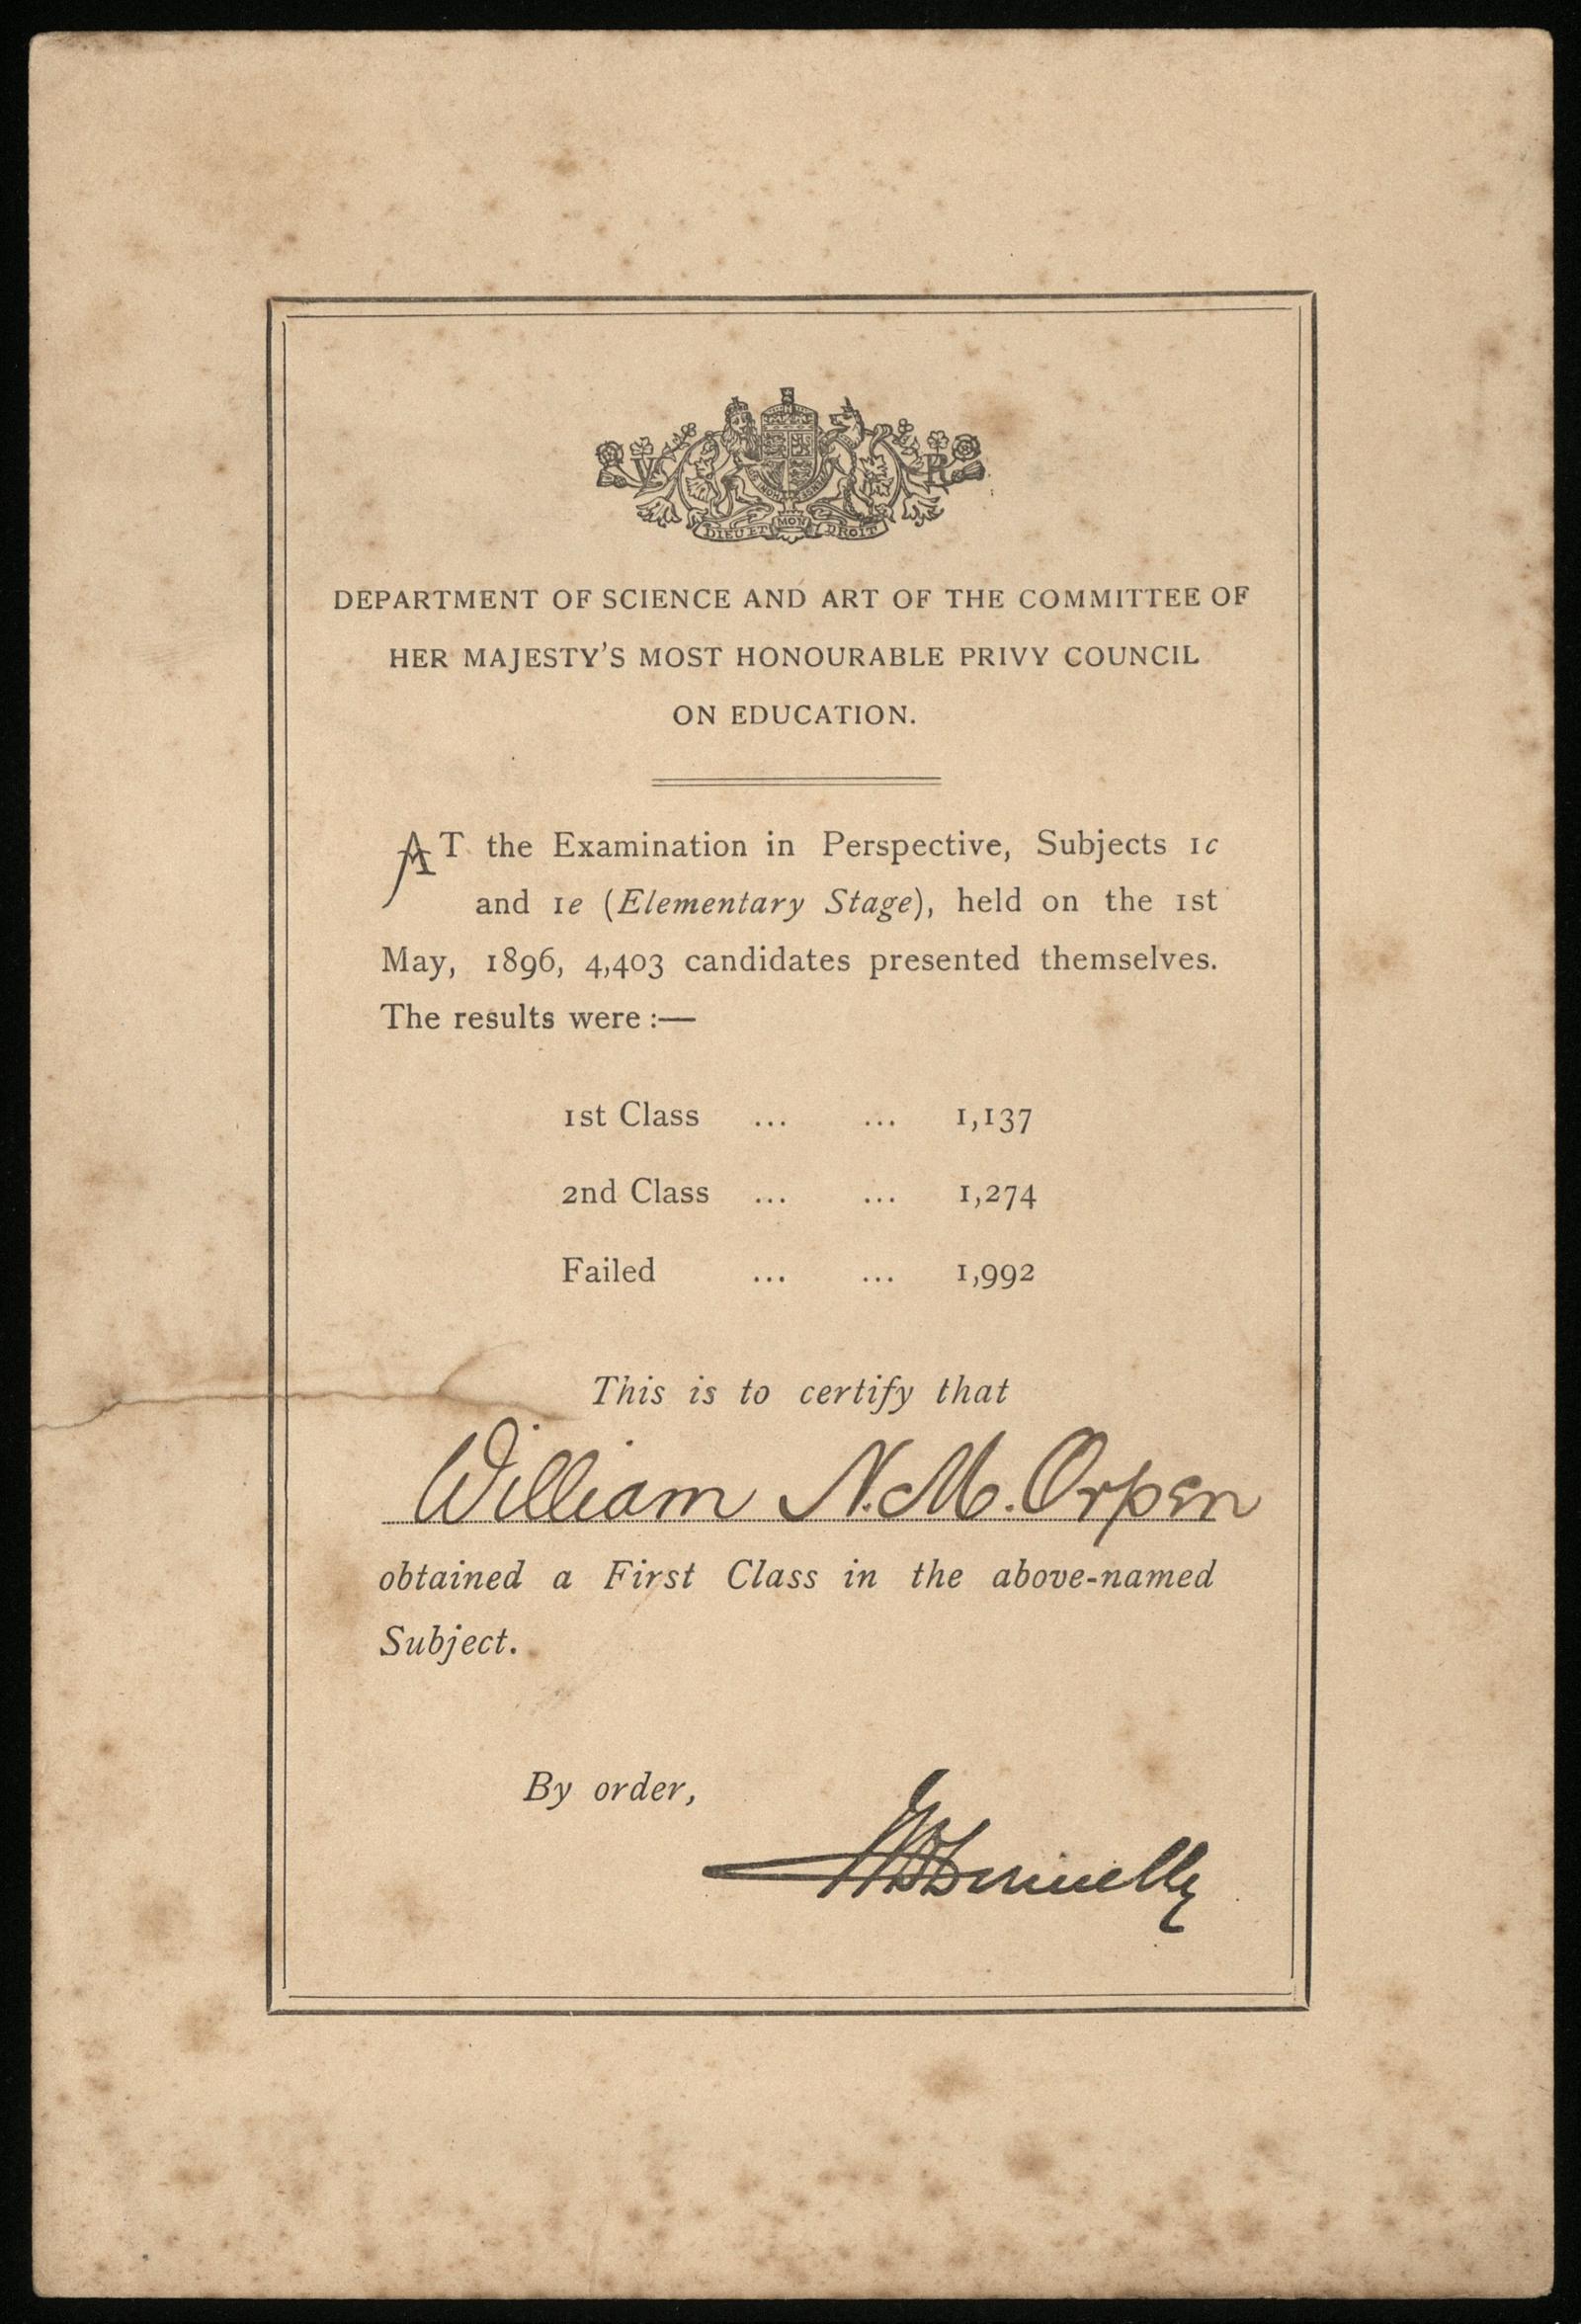 V R
DIEU ET MON DROIT
DEPARTMENT OF SCIENCE AND ART OF THE COMMITTEE OF
HER MAJESTY'S MOST HONOURABLE PRIVY COUNCIL
ON EDUCATION.
AT the Examination in Perspective, Subjects 1c
and 1e (Elementary Stage), held on the 1st
May, 1896, 4,403 candidates presented themselves.
The results were :—
1st Class ... ... 1,137
2nd Class ... ... 1,274
Failed ... ... 1,992
This is to certify that
William N. M. Orpen
obtained a First Class in the above-named
Subject.
By order,
Donnelly